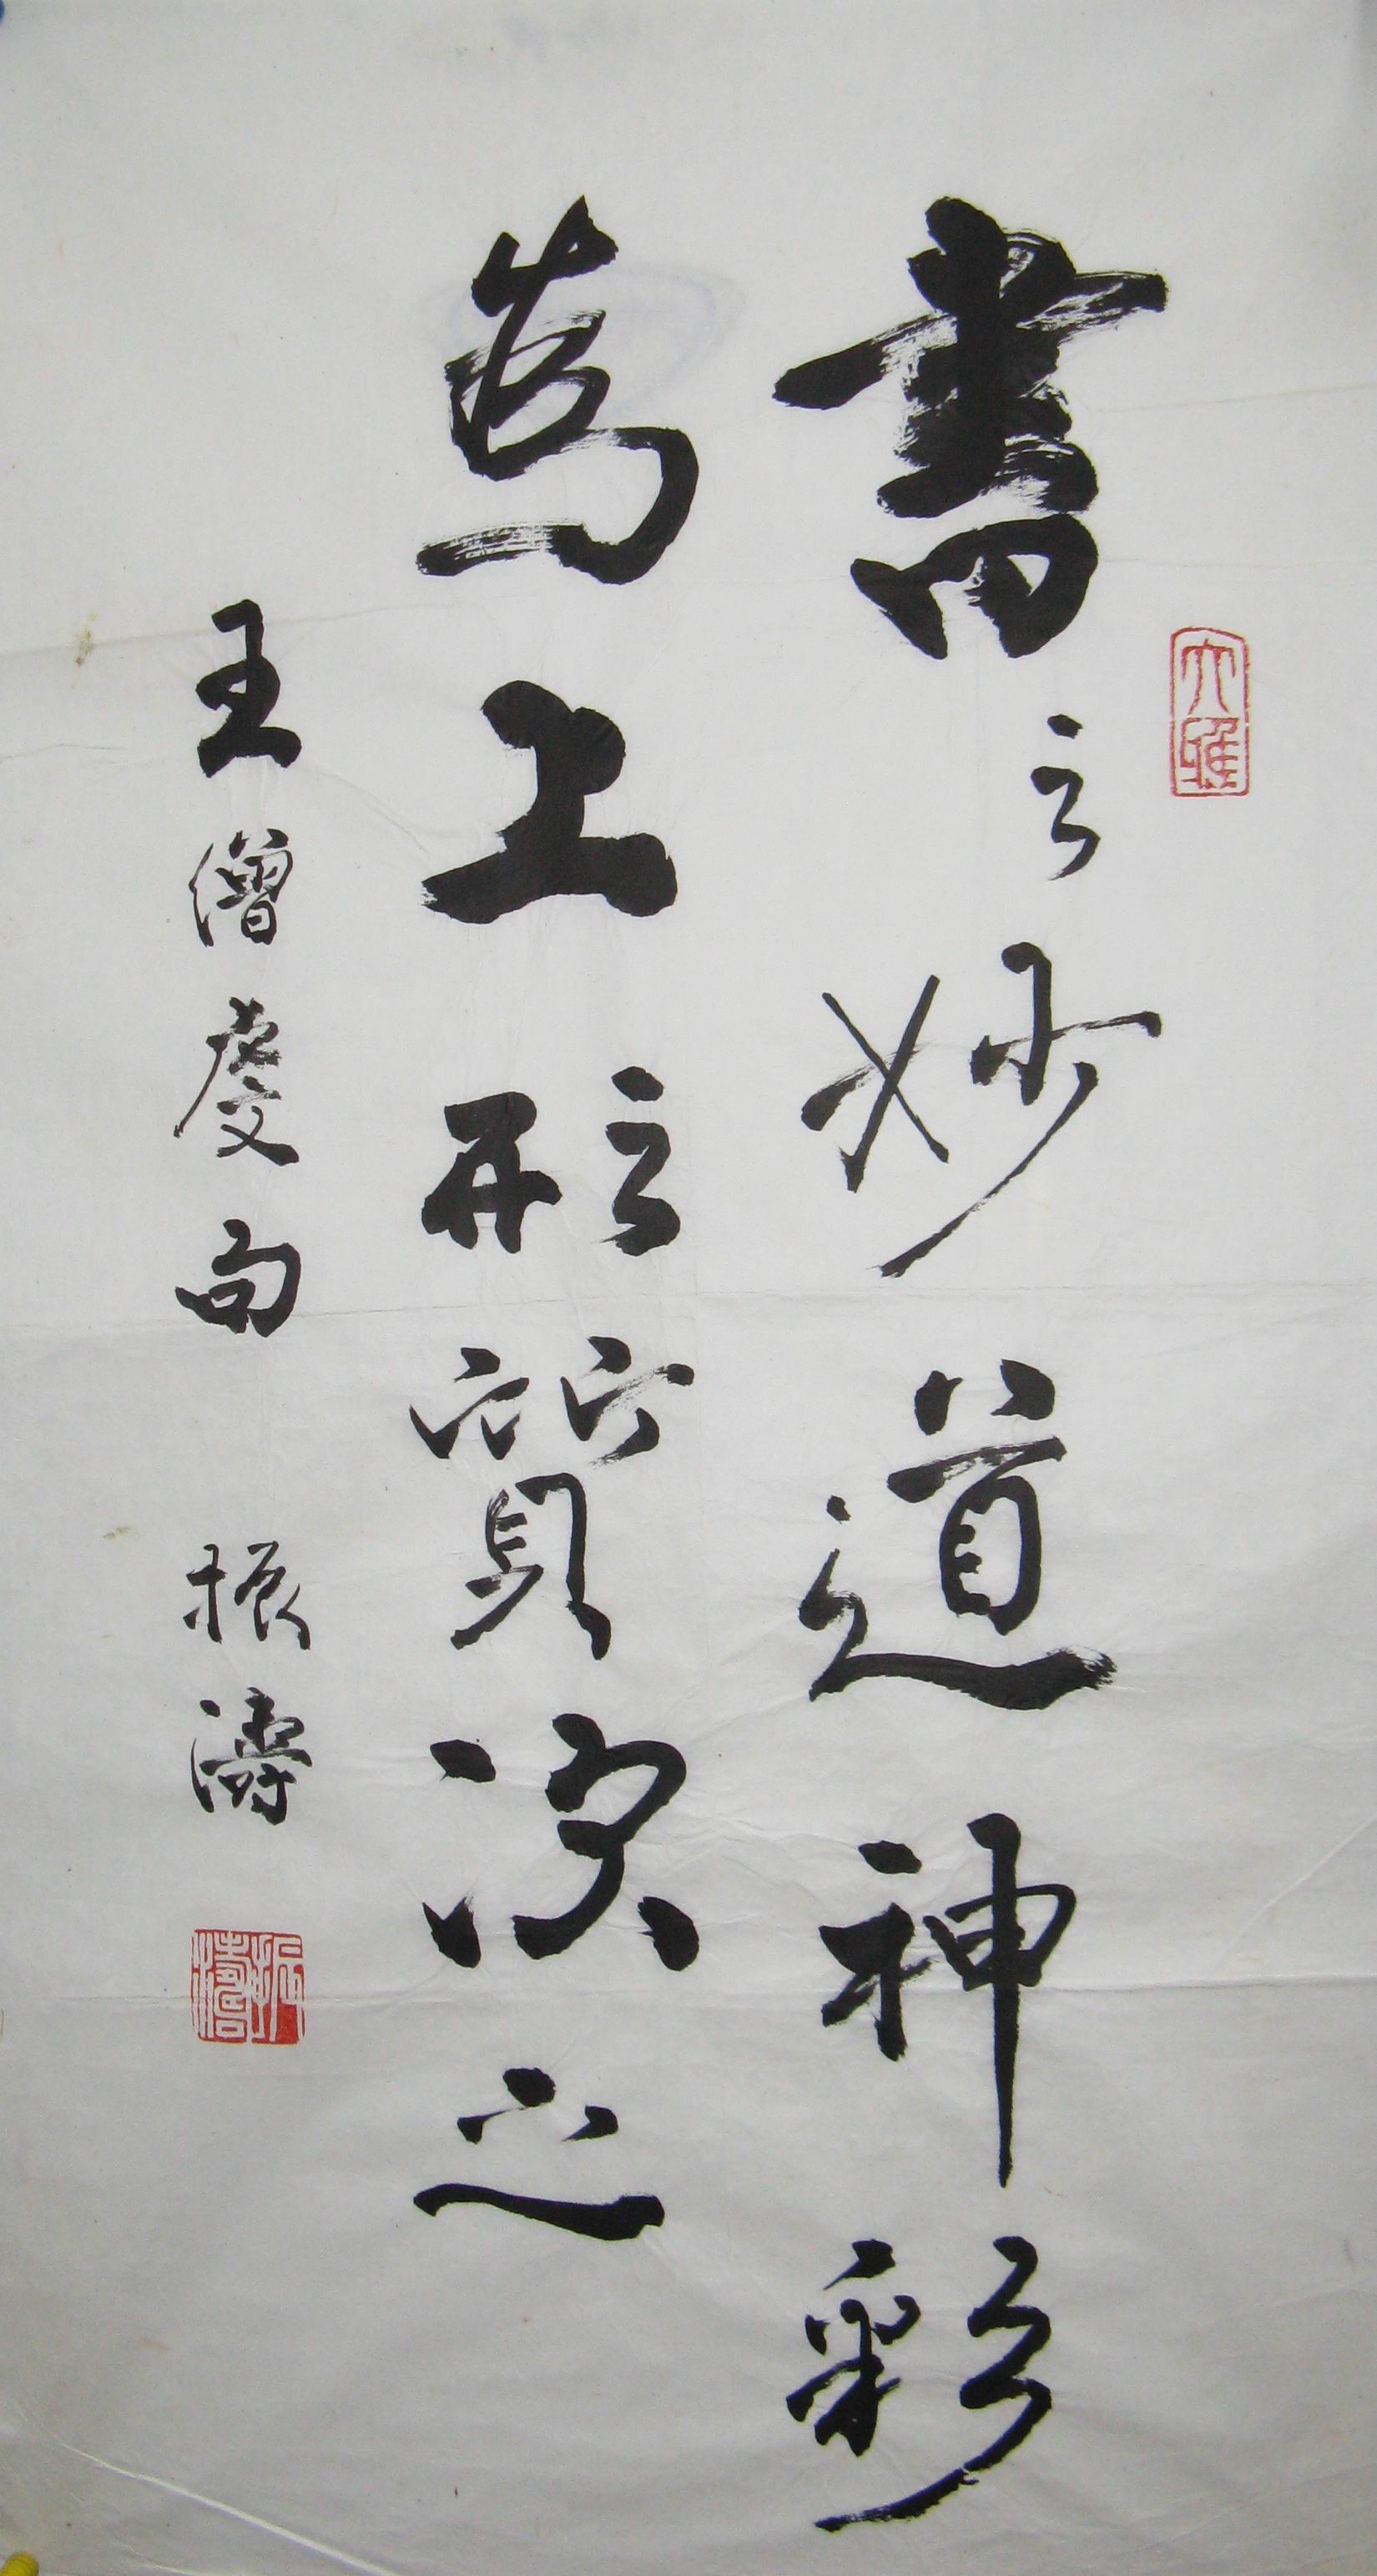 大雅
書之妙道神彩
為上形質次之
王僧虔句 振濤
振濤